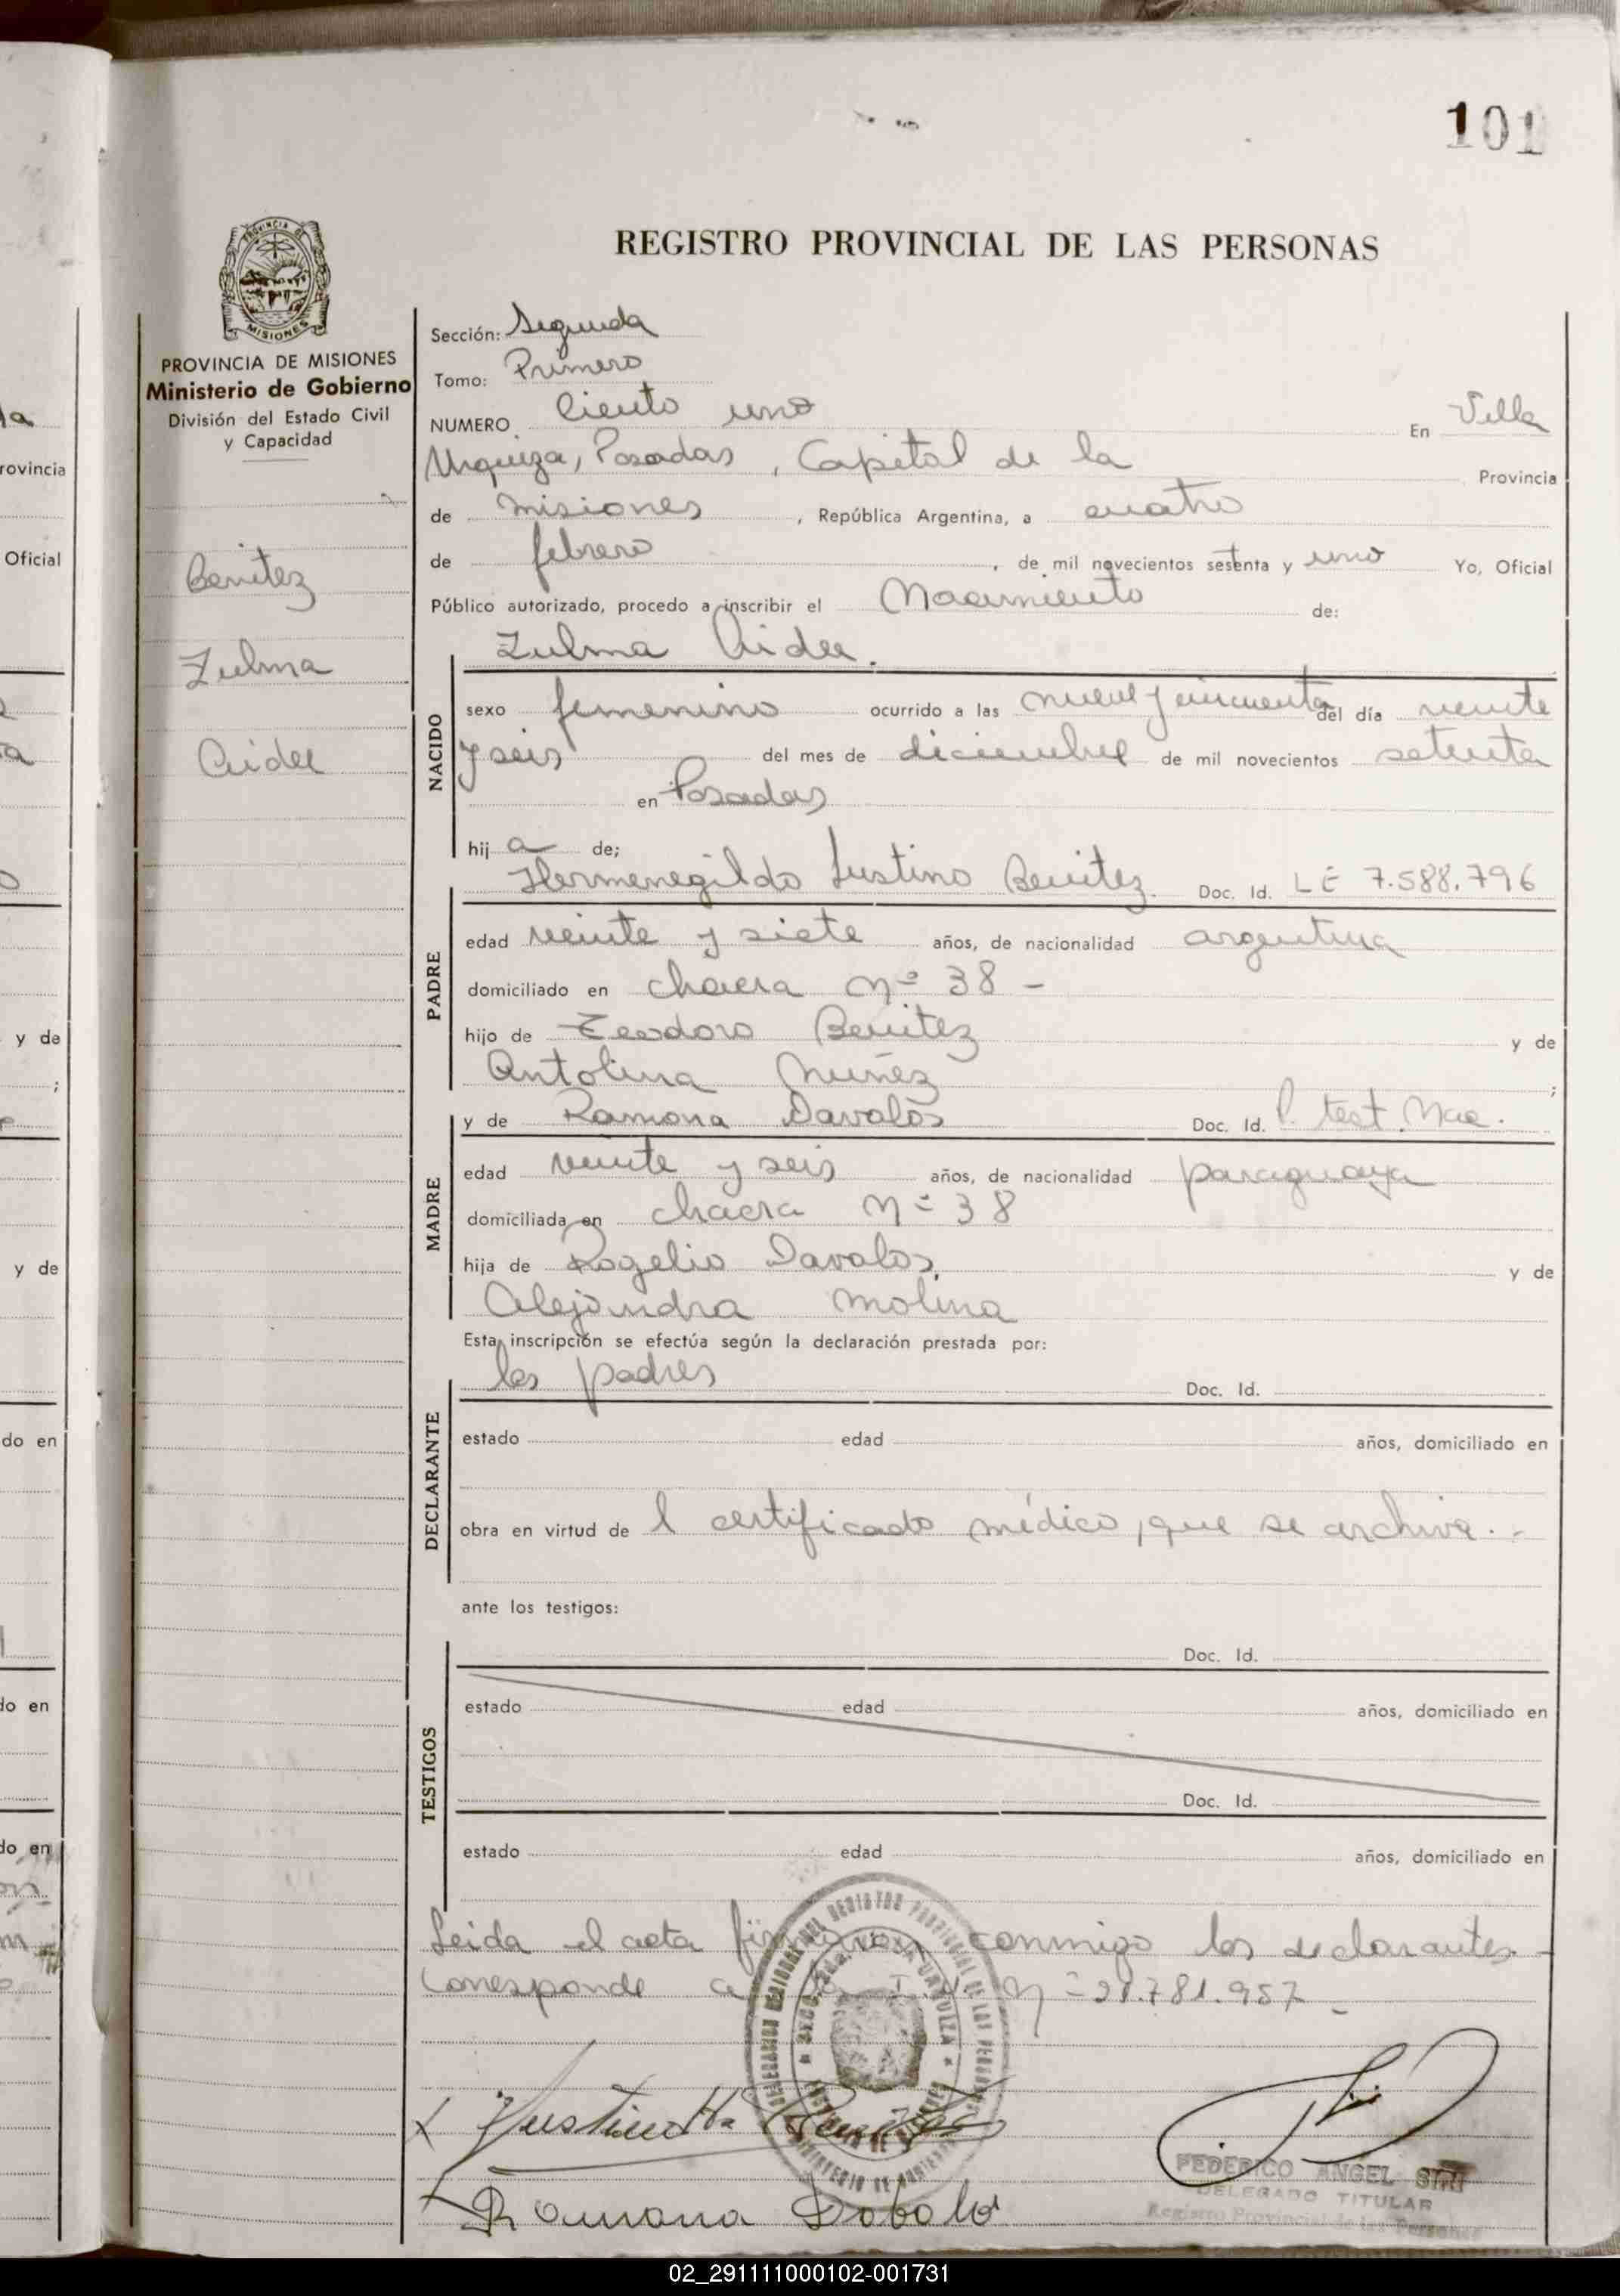 101
REGISTRO PROVINCIAL DE LAS PERSONAS
PROVINCIA DE
MISIONES
PROVINCIA DE MISIONES
Ministerio de Gobierno
División del Estado Civil
y Capacidad
Benitez
Zulma
Aidee
Sección: Segunda
Tomo: Primero
NUMERO Ciento uno En Villa
Urquiza, Posadas, Capital de la Provincia
de Misiones, República Argentina, a cuatro
de febrero, de mil novecientos sesenta y uno Yo, Oficial
Público autorizado, procedo a inscribir el Nacimiento de:
Zulma Aidee.
NACIDO
sexo femenino ocurrido a las nueve y cincuenta del día veinte
y seis del mes de diciembre de mil novecientos setenta
en Posadas
hij a de;
Hermenegildo Justino Benitez. Doc. Id. LE 7.588.796
PADRE
edad veinte y siete años, de nacionalidad argentina
domiciliado en chacra nº 38 -
hijo de Teodoro Benitez y de
Antolina Nuñez ;
y de Ramona Davalos Doc. Id. P. test. Nac.
MADRE
edad veinte y seis años, de nacionalidad paraguaya
domiciliada en chacra Nº 38
hija de Rogelio Davalos, y de
Alejandra Molina
Esta inscripción se efectúa según la declaración prestada por:
los padres Doc. Id.
DECLARANTE
estado edad años, domiciliado en
obra en virtud de l certificado médico, que se archiva. -
ante los testigos:
Doc. Id.
TESTIGOS
estado edad años, domiciliado en
Doc. Id.
estado edad años, domiciliado en
Leida el acta firman conmigo los declarantes -
Corresponde a Nº 21.781.957 -
x Justino H. Benitez
Ramona Dabalo
FEDERICO ANGEL
DELEGADO TITULAR
Registro Provincial de las Personas
la
rovincia
Oficial
y de
;
y de
do en
do en
do en
02_291111000102-001731